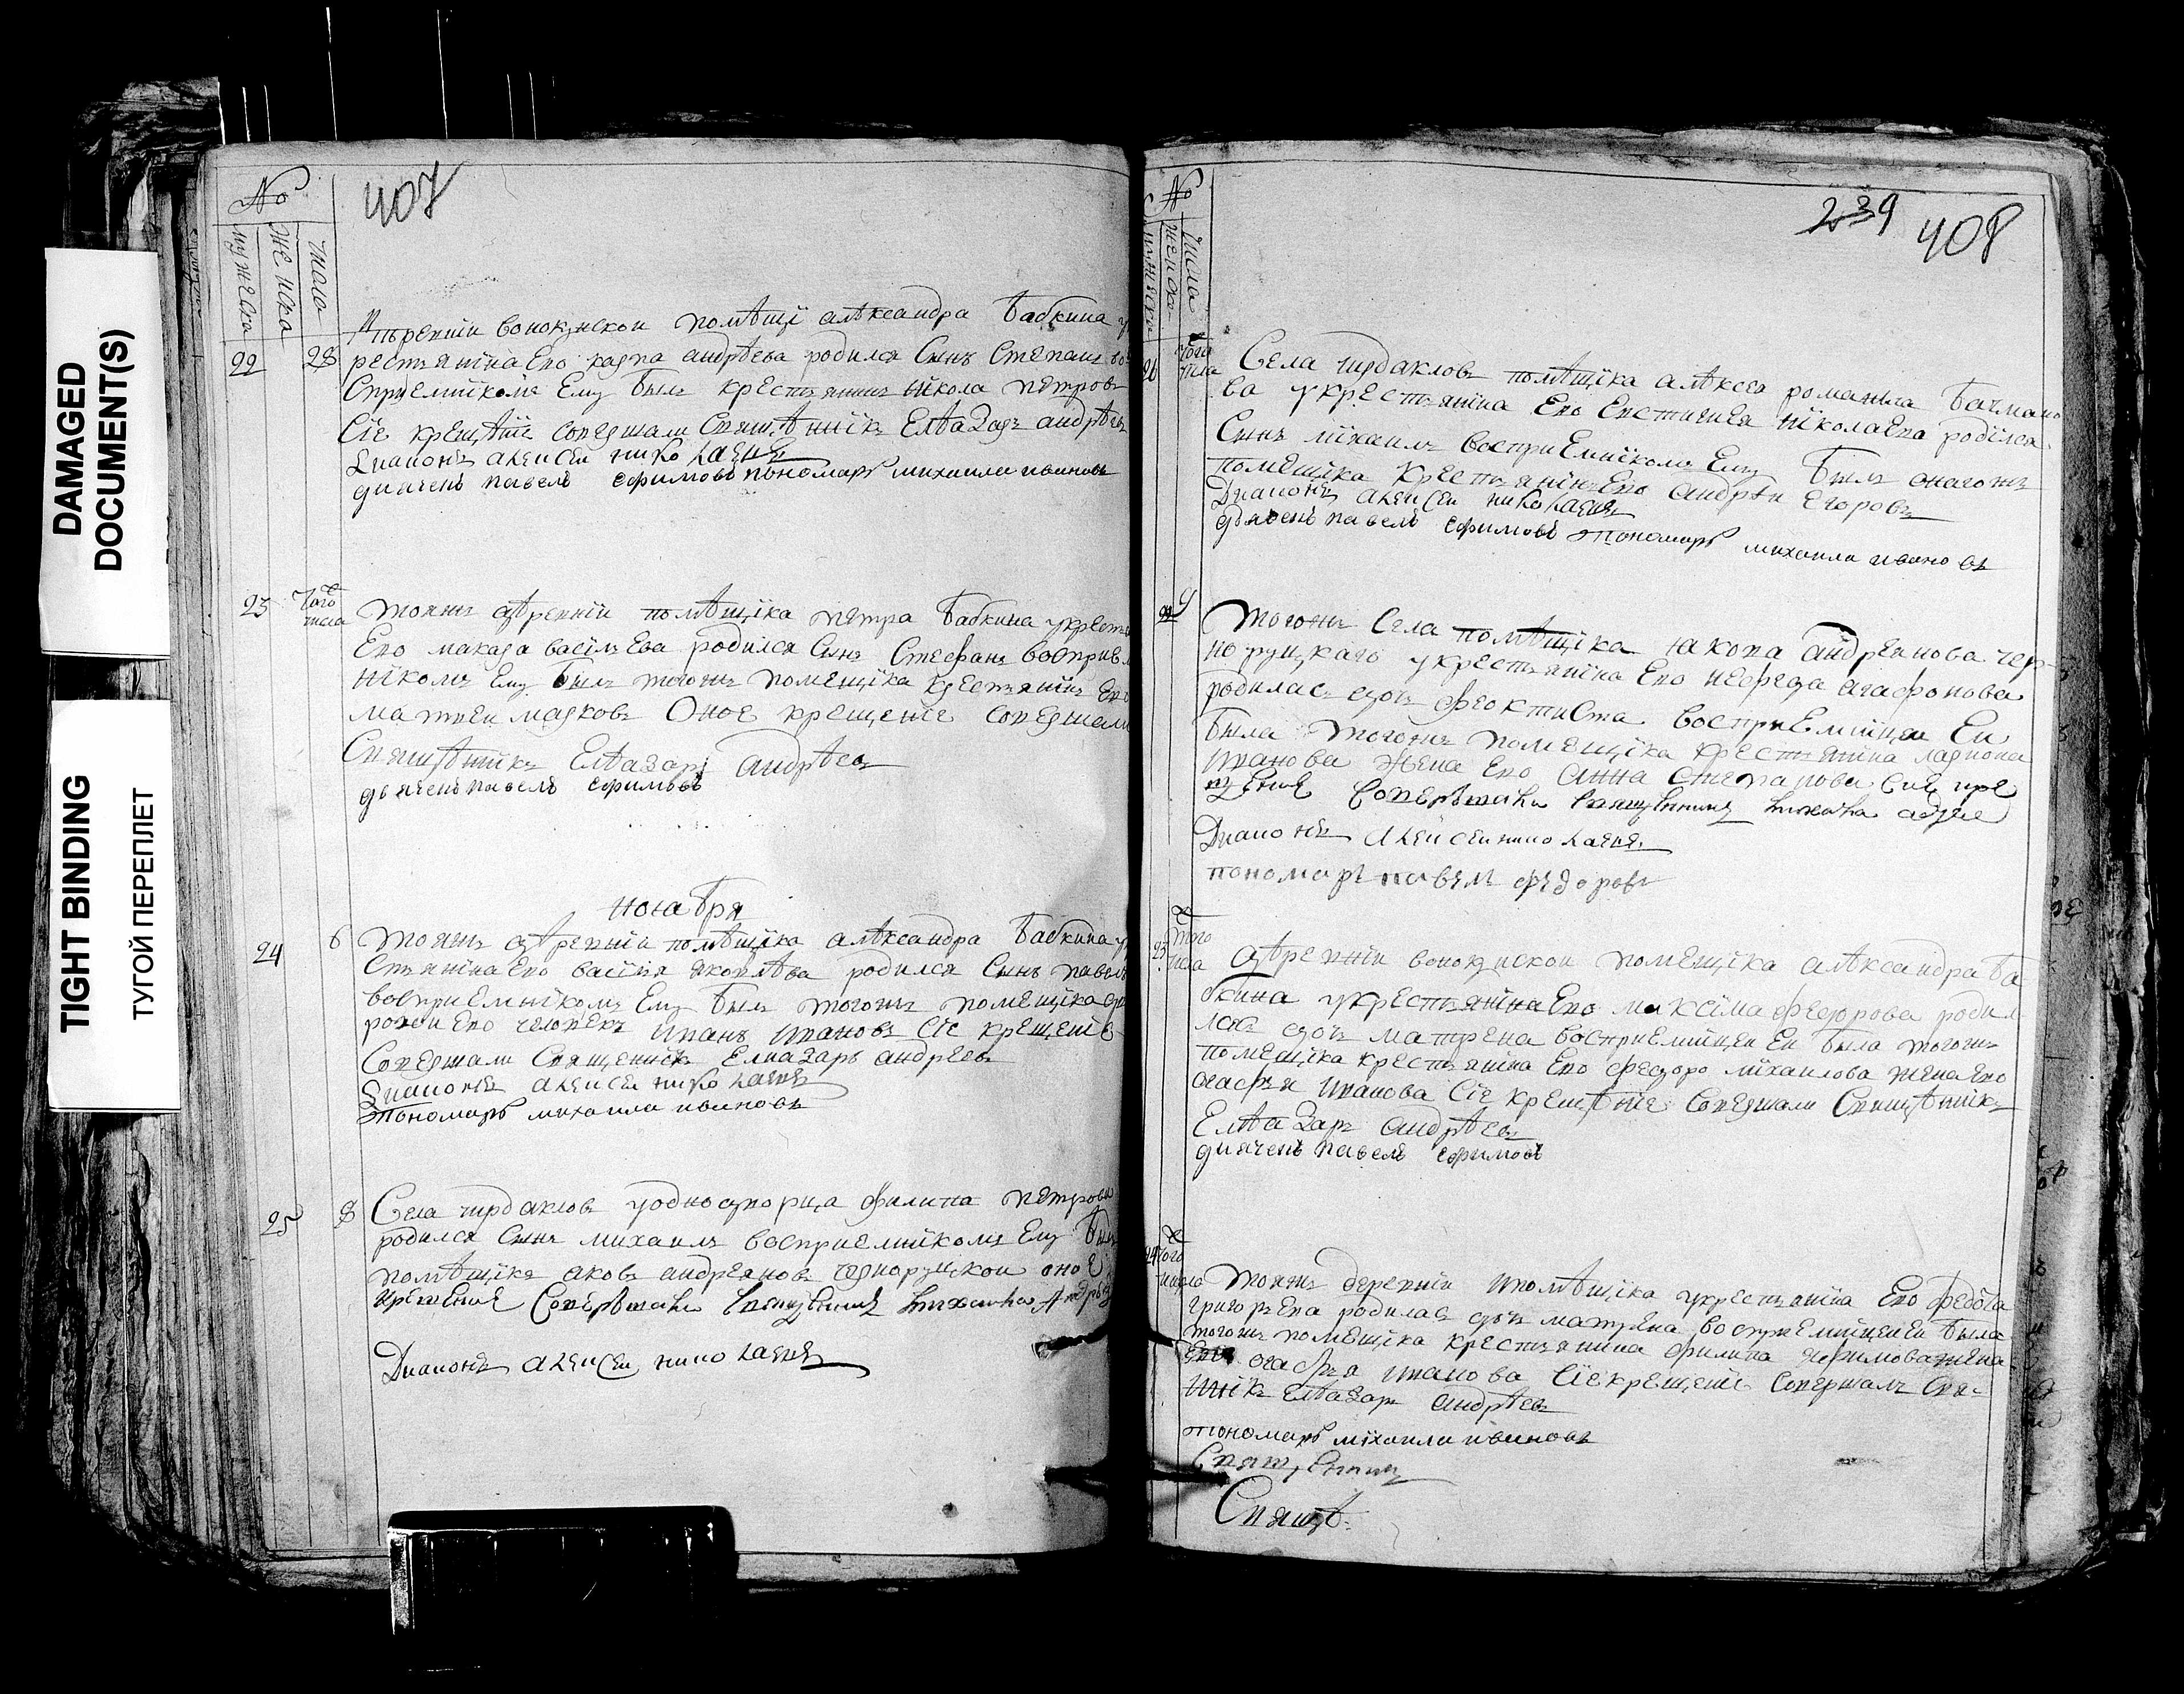 DAMAGED
DOCUMENT(S)
TIGHT BINDING
ТУГОЙ ПЕРЕПЛЕТ
№
407
мужеска
женска
числа
помѣщи алѣксандра бабкина у
22
28
рестьянина Ево карпа андрѣева родился Сынъ Степанъ во
Сприемникомъ Ему былъ крестьянинъ Никола петровъ
Сіе крещѣніе совершали Свящѣнникъ Елѣазаръ андрѣевъ
Диаконъ алеисеи николаевъ
дьячекъ павелъ ефимовъ пономарь михаила ивановъ
23
того
числа
тояжъ дѣревни помѣщика пѣтра бабкина укрестья
Ево макара васильева родился Сынъ Стефанъ восприем
никомъ Ему былъ тогожъ помещика крестьянинъ Ево
матвеи марковъ Оное крещение совершали
Свящѣнникъ Елѣазаръ андрѣевъ
дьячекъ павелъ ефимовъ
ноѧбря
24
6
тояжъ дѣревни помѣщика алѣксандра бабкина у
Стьянина Ево василя яковлѣва родился Сынъ павелъ
восприемникомъ Ему былъ тогожъ помещика дво
ровои Ево человекъ иванъ ивановъ Сіе крещение
Совершали Священикъ Елиазаръ андреевъ
Диаконъ алеисеи николаевъ
пономарь михаила ивановъ
25
8
Села чирдаклов уоднодворца филипа петрова
родился Сынъ михаилъ восприемникомъ Ему был
помѣщикъ аковъ андреяновъ чернорускои оное
крещение Совершали Священникъ андрѣ
Диаконъ алеисеи николаевъ
№
мужеска
женска
числа
239
408
26
того
числа
Села чирдаклов помѣщика алѣксея романова бачмано
ва укрестьянина Ево Евстигнея николаева родился
Сынъ михаилъ восприемникомъ Ему былъ онагожъ
помещика крестьянинъ Ево андрѣи Егоровъ
Диаконъ алеисеи николаевъ
дьячекъ павелъ ефимовъ пономарь михаила ивановъ
22
9
тогожъ Села помѣщика якова андреинова чер
норуцкаго укрестьянина Ево неферда агафонова
родилась дочь феоктиста восприемницеи Еи
была тогожъ помещика крестьянина лариона
иванова жена Ево анна Степанова Сие кре
щение Совершали Священникъ
Диаконъ алеисеи николаевъ
пономарь павелъ федоровъ
23
того
числа
дѣревни помещика алѣксандра ба
бкина укрестьянина Ево максима федорова родил
лась дочь матрена восприемницеи Еи была тогожъ
помещика крестьянина Ево федоро михаилова жена Ево
агафья иванова Сіе крещѣніе Совершали Свящѣнникъ
Елѣазаръ андрѣевъ
дьячекъ павелъ ефимовъ
24
того
числа
тояжъ деревни ипомѣщика укрестьянина Ево федота
григорьева родилась дочь матрена восприемницеи была
тогожъ помещика крестьянина филипа жена
Ево агафья иванова Сіе крещеніе Совершалъ Свя-
никъ Елѣазаръ андрѣевъ
пономарь михаила ивановъ
Священникъ
Свящѣ